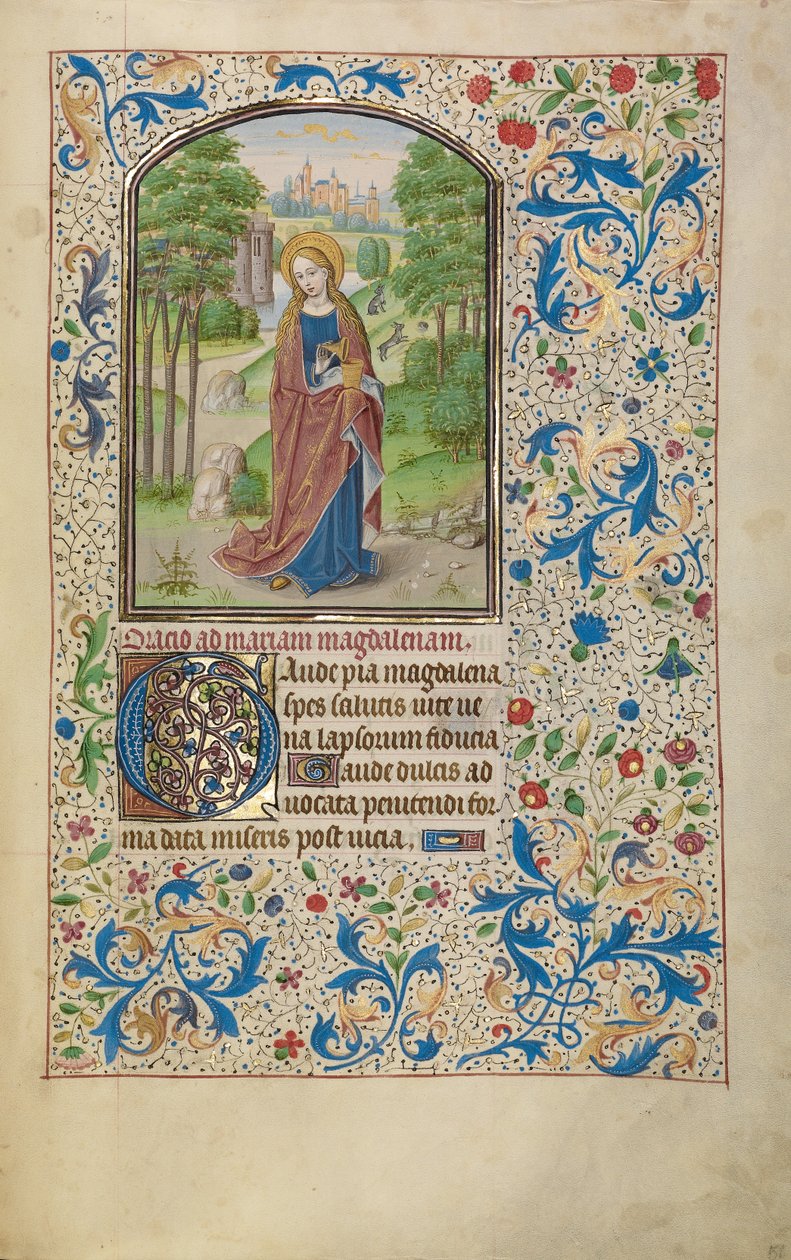 Oracio ad mariam magdalenam.
Gaude pia magdalena
spes salutis uite ue
na lapsorum fiducia
Gaude dulcis ad
uocata penitendi for
ma data miseris post uicia.